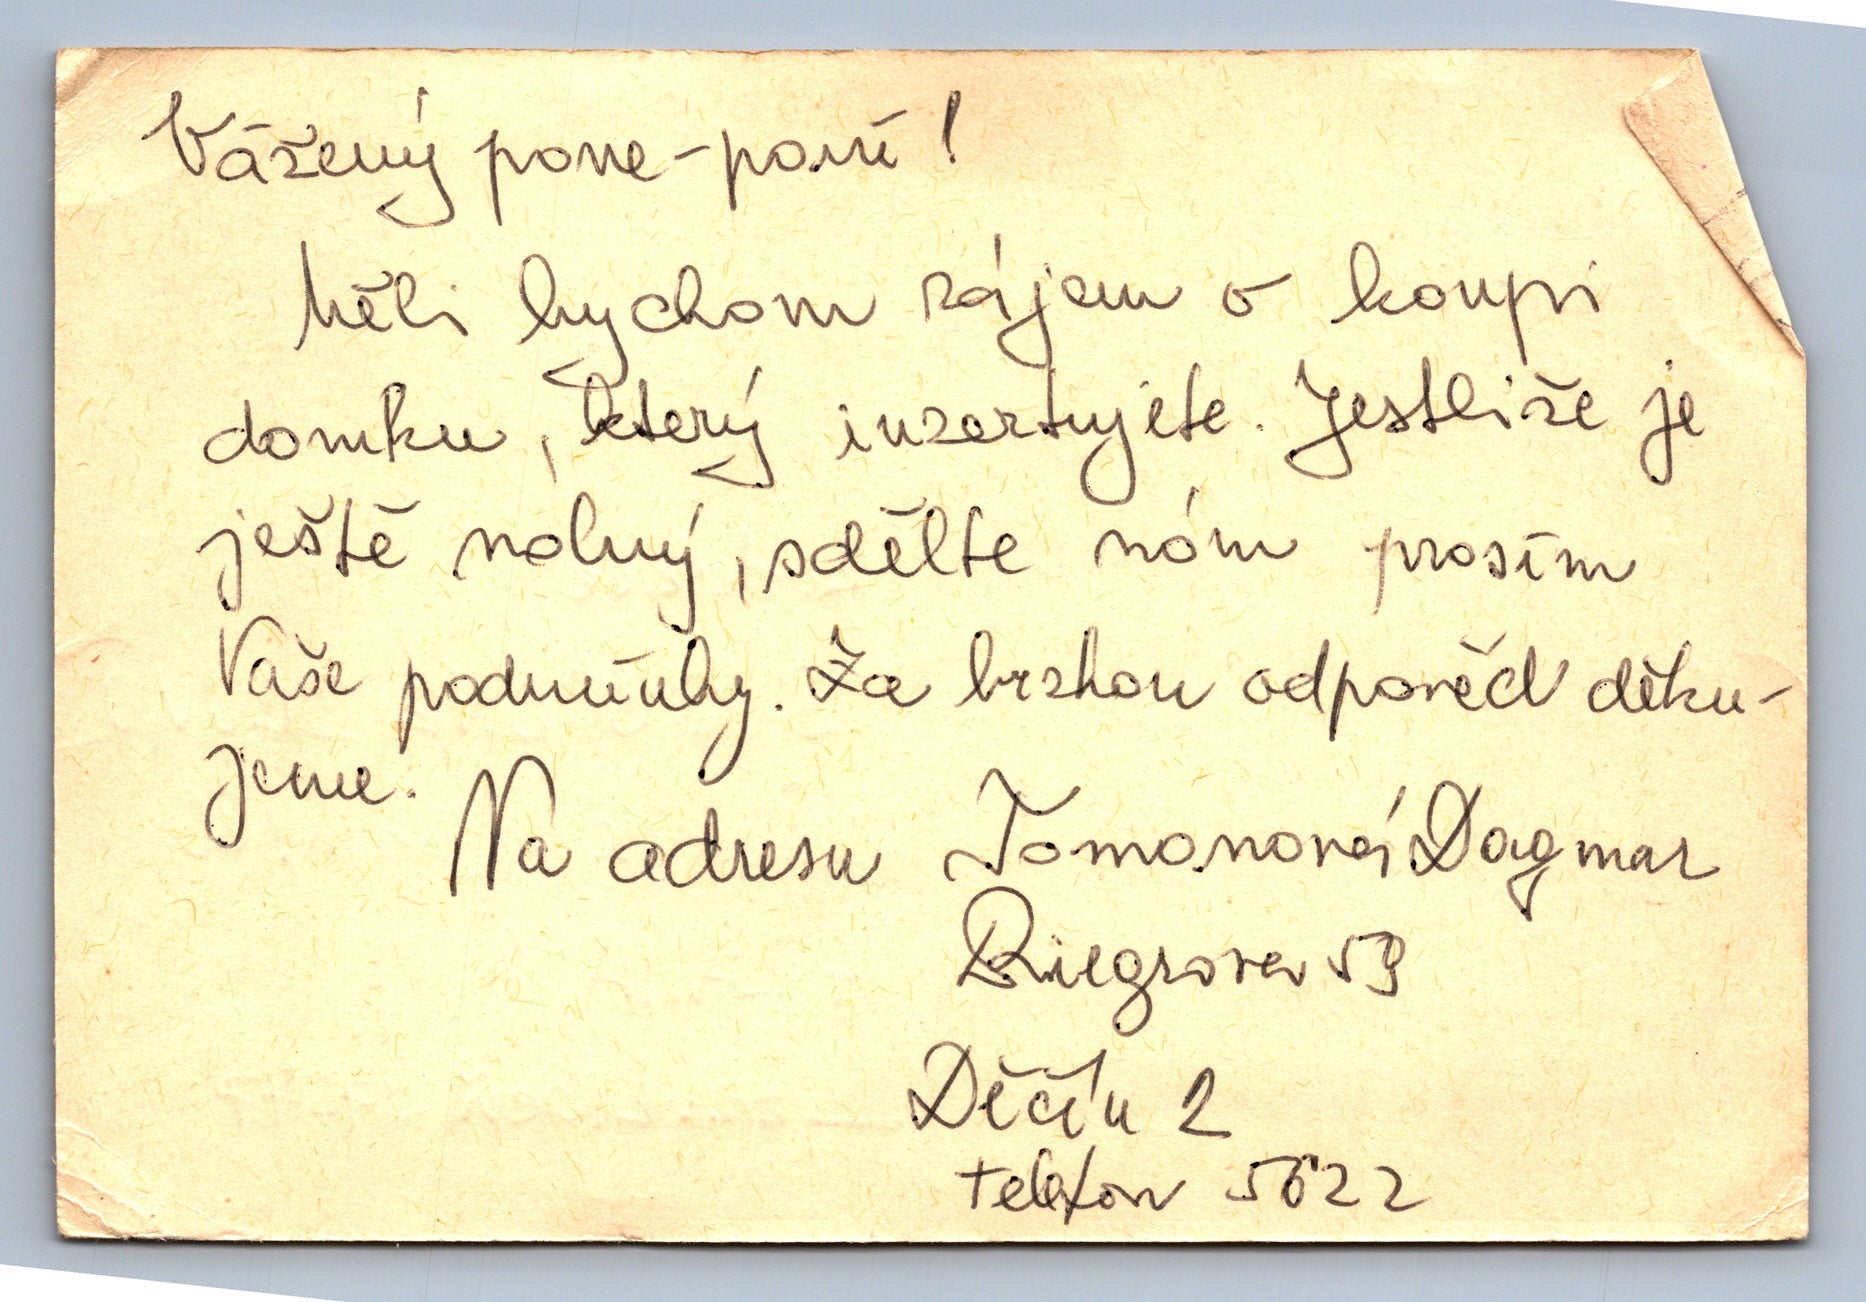 Vážený pane-paní!
Měli bychom zájem o koupi
domku, který inzertujete. Jestliže je
ještě volný, sdělte nám prosím
Vaše podmínky. Za brzkou odpověď děku-
jeme.
Na adresu Tomanová Dagmar
Riegrova 59
Děčín 2
telefon 5622